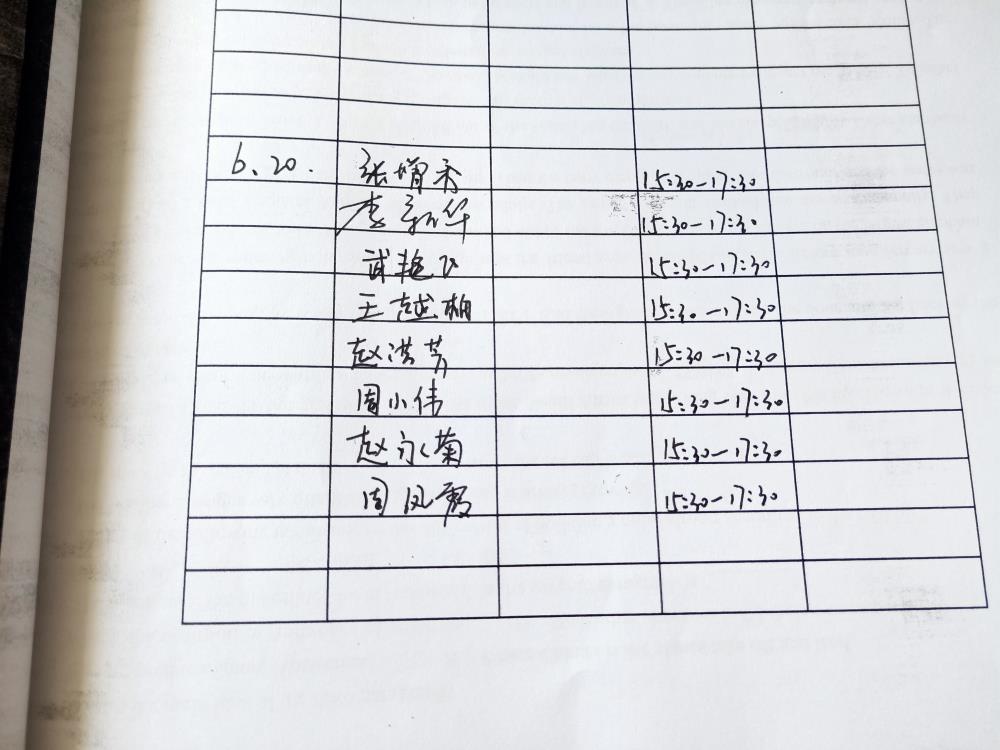 6.20. 张增禾 15:30-17:30
李新华 15:30-17:30
武艳飞 15:30-17:30
王越相 15:30-17:30
赵洪芳 15:30-17:30
周小伟 15:30-17:30
赵永菊 15:30-17:30
周凤霞 15:30-17:30